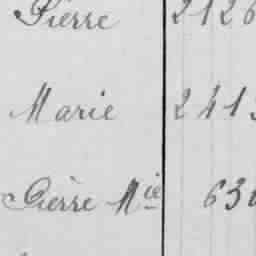 Pierre 2126
Marie 241
Pierre Mie 630